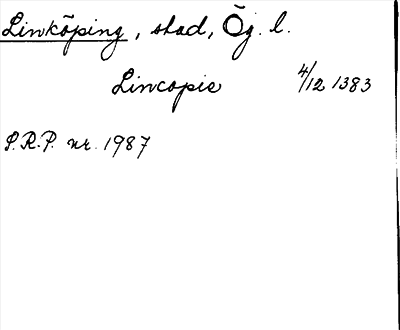 Linköping, stad, Ög. l.
Lincopie 4/12 1383
S.R.P. nr. 1987